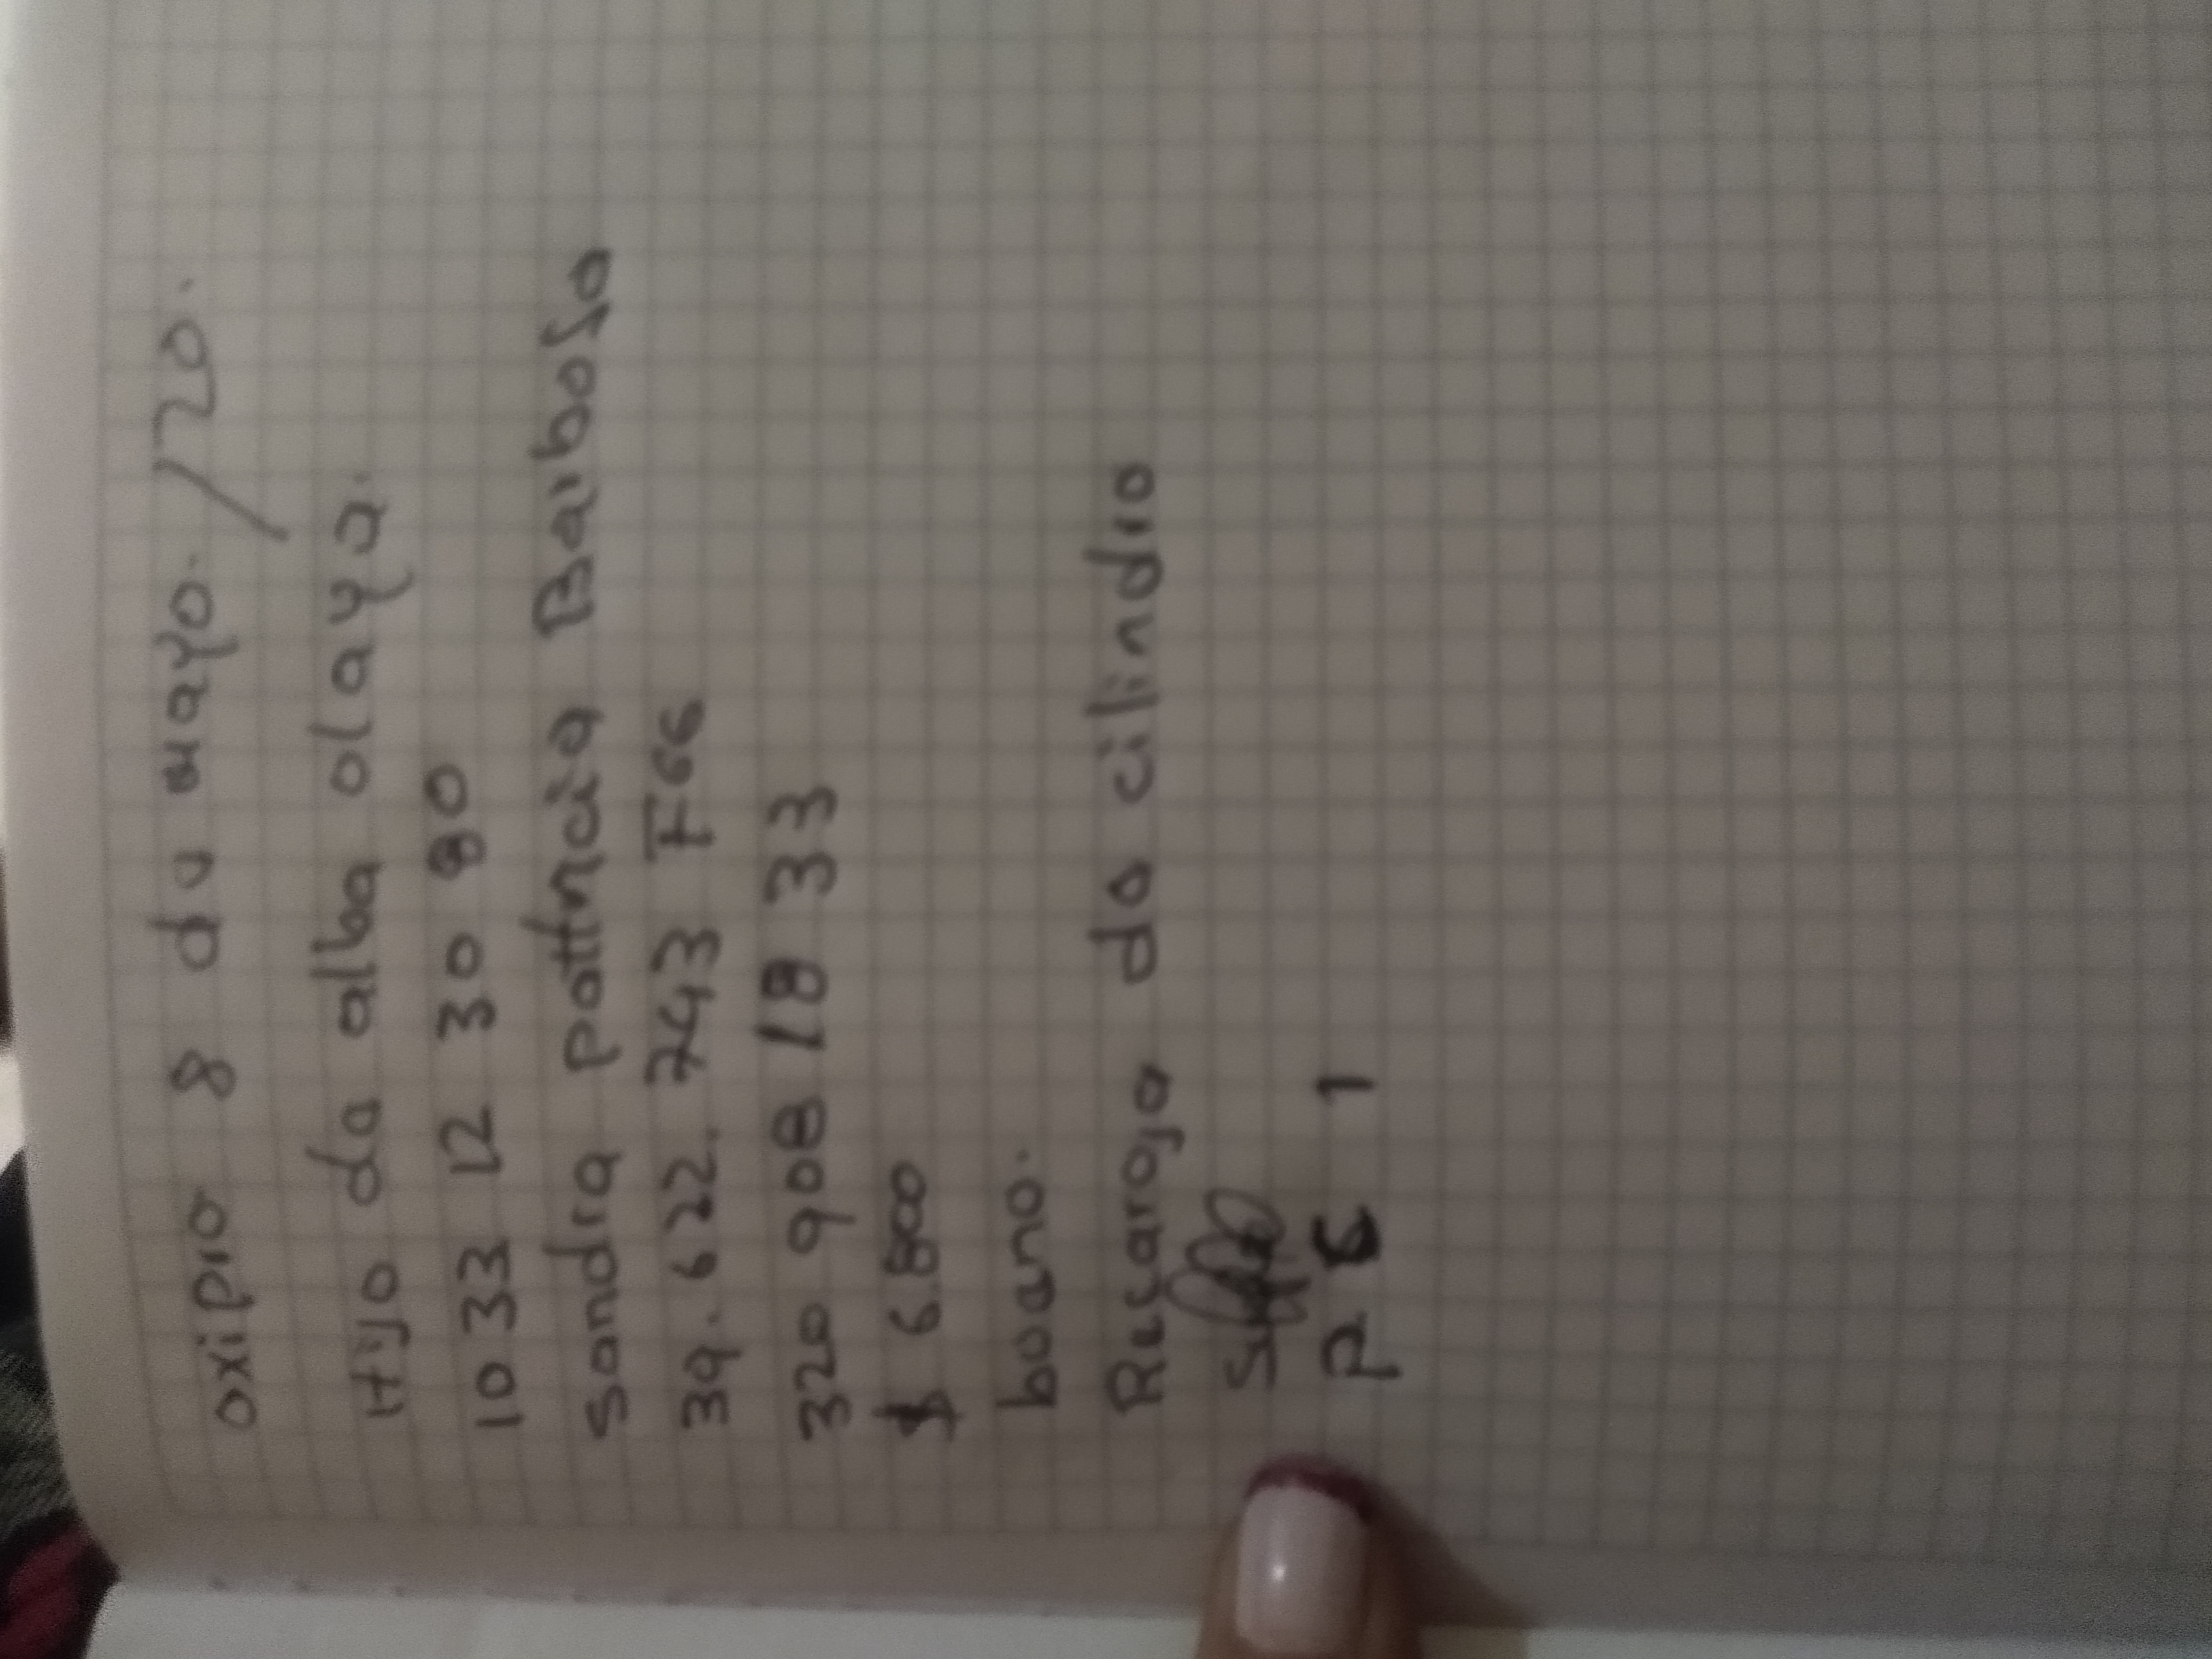 oxipro 8 du mayo. /20.
Hijo da alba olaya.
10 33 12 30 80
Sandra pattricia Barbosa
39. 622. 743 FGG
320 908 18 33
$ 6.800
boano.
Recarga da cilindro
P E 1